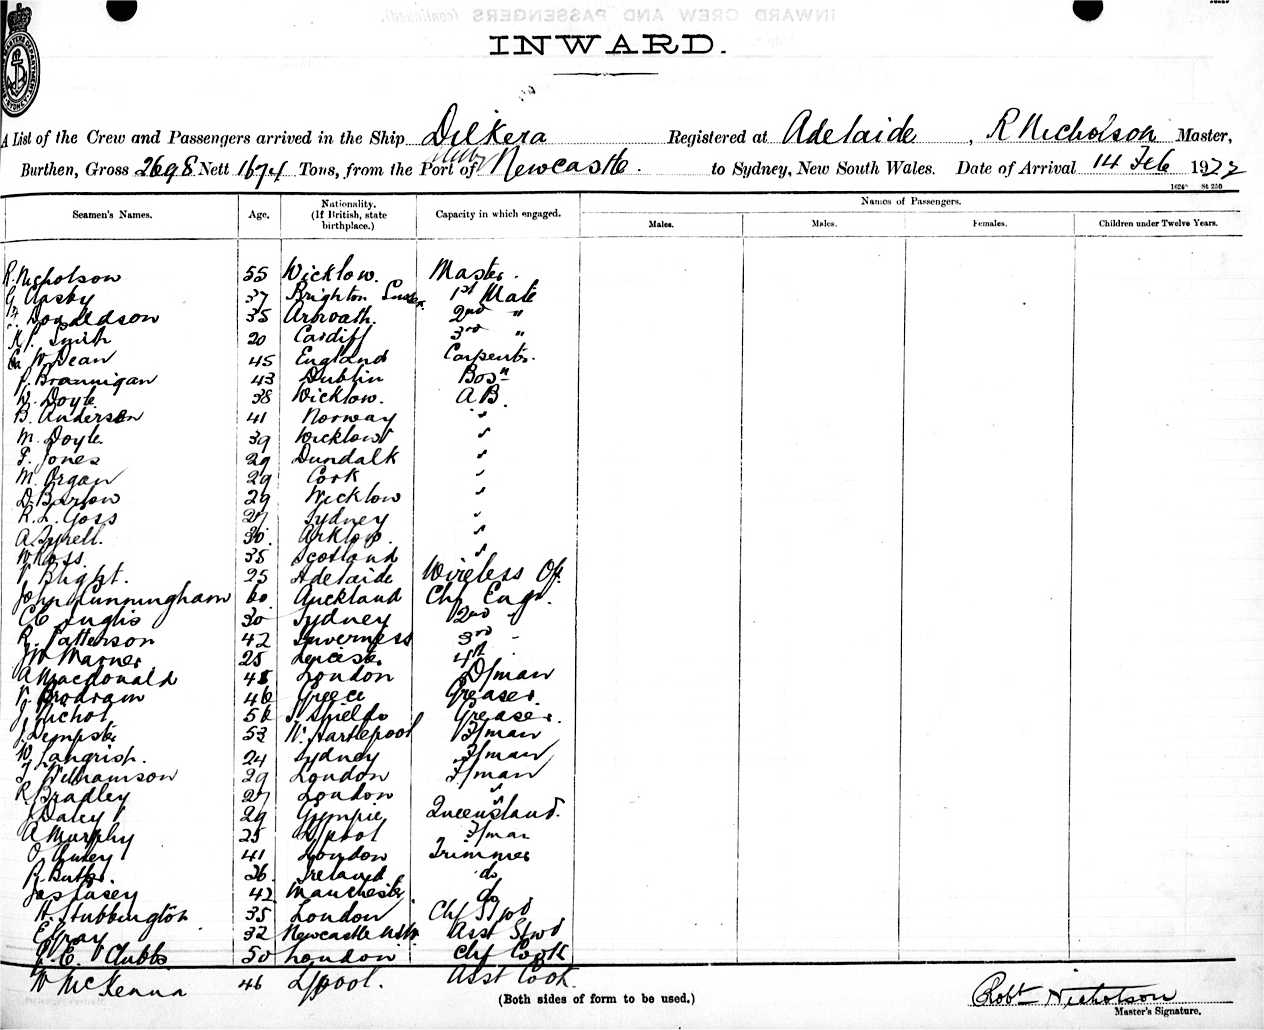 INWARD CREW AND PASSENGERS (continued).
INWARD.
A List of the Crew and Passengers arrived in the Ship Dilkera Registered at Adelaide, R Nicholson Master,
Burthen, Gross 2698 Nett 1674 Tons, from the Port of Newcastle. to Sydney, New South Wales. Date of Arrival 14 Feb 1922
1624° St 250
Seamen's Names. Age. Nationality. (If British, state birthplace.) Capacity in which engaged. Names of Passengers.
Males. Males. Females. Children under Twelve Years.
R. Nicholson 55 Wicklow. Master.
G 37 Brighton 1st Mate
Donaldson 35 Arbroath. 2nd "
Smith 20 Cardiff 3rd "
W Dean 45 England Carpentr.
P Brannigan 43 Dublin Bosn
W. Doyle 38 Wicklow. A.B.
B. Anderson 41 Norway "
M. Doyle 39 Wicklow "
F. Jones 29 Dundalk "
M. Organ 29 Cork "
D. Barlow 29 Wicklow "
R. L. Goss 27 Sydney "
A. Tyrell. 30. Arklow. "
W Ross. 35 Scotland "
V. Blight. 25 Adelaide Wireless Op.
John Cunningham 60 Auckland Chf Engr.
C.E. Inglis 30 Sydney 2nd "
R. Patterson 42 Inverness 3rd "
J W Warner 25 Leicester 4th
A Macdonald 48 London D/man
V. 46 Greece Greaser.
J Nichol 56 S Shields Greaser.
J. Dempster 53 W. Hartlepool F/man
W Langrish. 24 Sydney F/man
T Williamson 29 London F/man
R Bradley 27 London "
J Daley 29 Gympie, Queensland. "
A Murphy 25 L'pool F/man
O 41 London Trimmer
R. Butler. 26. Ireland do
Jas Casey 42 Manchester do
H. Stubbington 35 London Chf Stwd
E Gray 32 Newcastle NSW Asst Stwd
G. E. Clubbs 50 London Chf Cook
W McKenna 46 L'pool. Asst Cook.
(Both sides of form to be used.)
Robt Nicholson
Master's Signature.